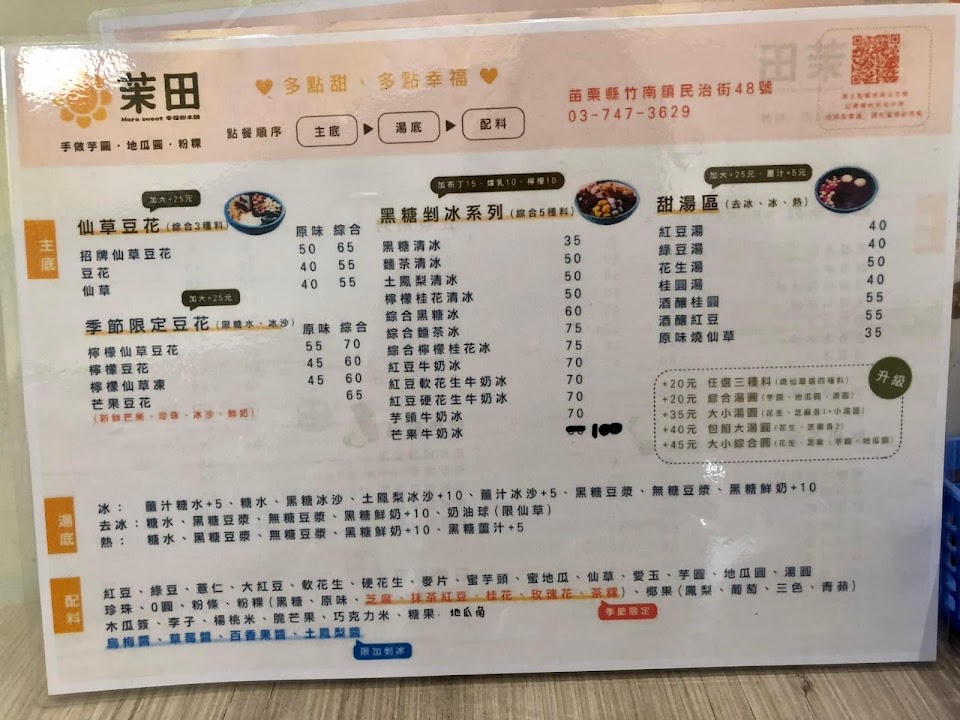 茉田
More sweet 幸福甜本舖
手做芋圓・地瓜圓・粉粿
多點甜、多點幸福
點餐順序 主底 湯底 配料
苗栗縣竹南鎮民治街48號
03-747-3629
主底
加大+25元
仙草豆花(綜合3種料) 原味 綜合
招牌仙草豆花 50 65
豆花 40 55
仙草 40 55
加大+25元
季節限定豆花(限糖水、冰沙) 原味 綜合
檸檬仙草豆花 55 70
檸檬豆花 45 60
檸檬仙草凍 45 60
芒果豆花 65
(新鮮芒果、珍珠、冰沙、鮮奶)
加布丁15、煉乳10、檸檬10
黑糖剉冰系列(綜合5種料)
黑糖清冰 35
麵茶清冰 50
土鳳梨清冰 50
檸檬桂花清冰 50
綜合黑糖冰 60
綜合麵茶冰 75
綜合檸檬桂花冰 75
紅豆牛奶冰 70
紅豆軟花生牛奶冰 70
紅豆硬花生牛奶冰 70
芋頭牛奶冰 70
芒果牛奶冰 100
加大+25元、薑汁+5元
甜湯區(去冰、冰、熱)
紅豆湯 40
綠豆湯 40
花生湯 50
桂圓湯 40
酒釀桂圓 55
酒釀紅豆 55
原味燒仙草 35
升級
+20元 任選三種料(燒仙草選四種料)
+20元 綜合湯圓(芋圓、地瓜圓、湯圓)
+35元 大小湯圓(花生、芝麻各1+小湯圓)
+40元 包餡大湯圓(花生、芝麻各2)
+45元 大小綜合圓(花生、芝麻、芋圓、地瓜圓)
湯底
冰： 薑汁糖水+5、糖水、黑糖冰沙、土鳳梨冰沙+10、薑汁冰沙+5、黑糖豆漿、無糖豆漿、黑糖鮮奶+10
去冰：糖水、黑糖豆漿、無糖豆漿、黑糖鮮奶+10、奶油球(限仙草)
熱： 糖水、黑糖豆漿、無糖豆漿、黑糖鮮奶+10、黑糖薑汁+5
配料
紅豆、綠豆、薏仁、大紅豆、軟花生、硬花生、麥片、蜜芋頭、蜜地瓜、仙草、愛玉、芋圓、地瓜圓、湯圓
珍珠、Q圓、粉條、粉粿(黑糖、原味、芝麻、抹茶紅豆、桂花、玫瑰花、茶粿)、椰果(鳳梨、葡萄、三色、青蘋)
季節限定
木瓜簽、李子、楊桃米、脆芒果、巧克力米、糖果、地瓜角
烏梅醬、草莓醬、百香果醬、土鳳梨醬
限加剉冰